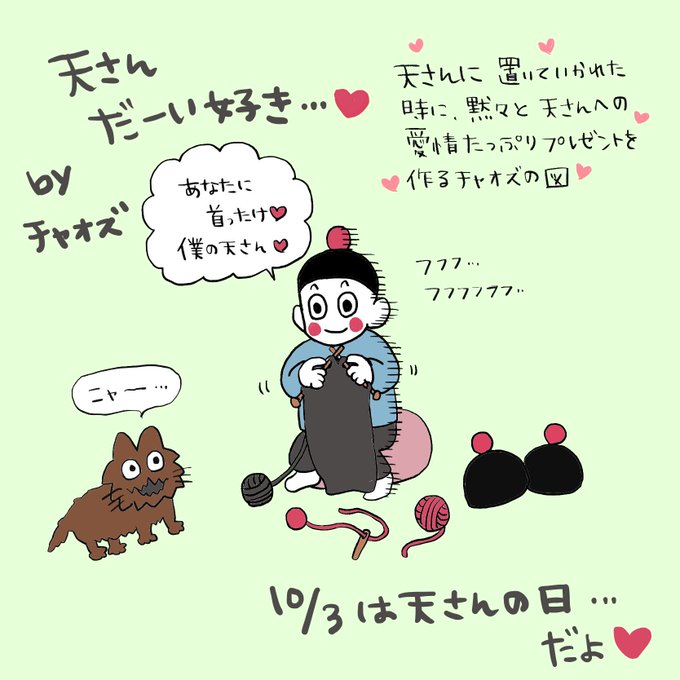 天さん
だーい好き…♥
by
チャオズ
天さんに置いていかれた
時に、黙々と天さんへの
愛情たっぷりプレゼントを
作るチャオズの図
あなたに
首ったけ♥
僕の天さん♥
フフフ…
フフフフフフ…
ニャー…
10/3は天さんの日…
だよ♥